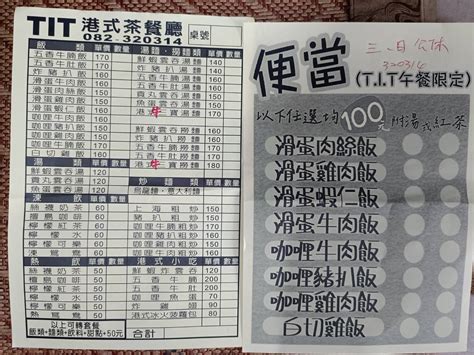 TIT 港式茶餐廳 桌號
082-320314
飯類 單價 數量
五香牛腩飯 170
炸豬扒飯 160
滑蛋肉絲飯
滑蛋雞肉飯
滑蛋蝦仁飯
滑蛋牛肉飯
咖哩豬扒飯
咖哩雞肉飯
咖哩牛腩飯
白切雞飯
湯類 單價 數量
鮮蝦雲吞湯
貢丸雲吞湯
魚蛋雲吞湯
凍飲 單價 數量
絲襪奶茶 60
檀島咖啡 60
檸檬紅茶 60
檸檬水 60
檸檬可樂 60
凍鴛鴦 60
熱飲 單價 數量
絲襪奶茶 50
檀島咖啡 50
檸檬紅茶 50
檸檬水 50
檸檬可樂 50
熱鴛鴦 50
以上可轉套餐
飯類+麵類+飲料+甜點+50元
湯麵、撈麵類 單價 數量
鮮蝦雲吞湯麵 140
炸豬扒湯麵 160
五香牛腩湯麵
貢丸雲吞湯麵
魚蛋雲吞湯麵
港式牛寶湯麵
鮮蝦雲吞撈麵
炸豬扒撈麵
五香牛腩撈麵
港式牛寶撈麵
炒麵類 單價 數量
烏龍麵、意大利麵
上海粗炒
豬扒粗炒
牛腩粗炒
咖哩豬扒粗炒
咖哩牛腩粗炒
港式小吃 單價 數量
鮮蝦炸雲吞
五香牛腩
五香牛肚
咖哩牛腩
咖哩魚蛋
港式冰火菠蘿包
合計
三、日公休
320314
便當
(T.I.T午餐限定)
以下任選均100元附湯或紅茶
滑蛋肉絲飯
滑蛋雞肉飯
滑蛋蝦仁飯
滑蛋牛肉飯
咖哩牛腩飯
咖哩豬扒飯
咖哩雞肉飯
白切雞飯